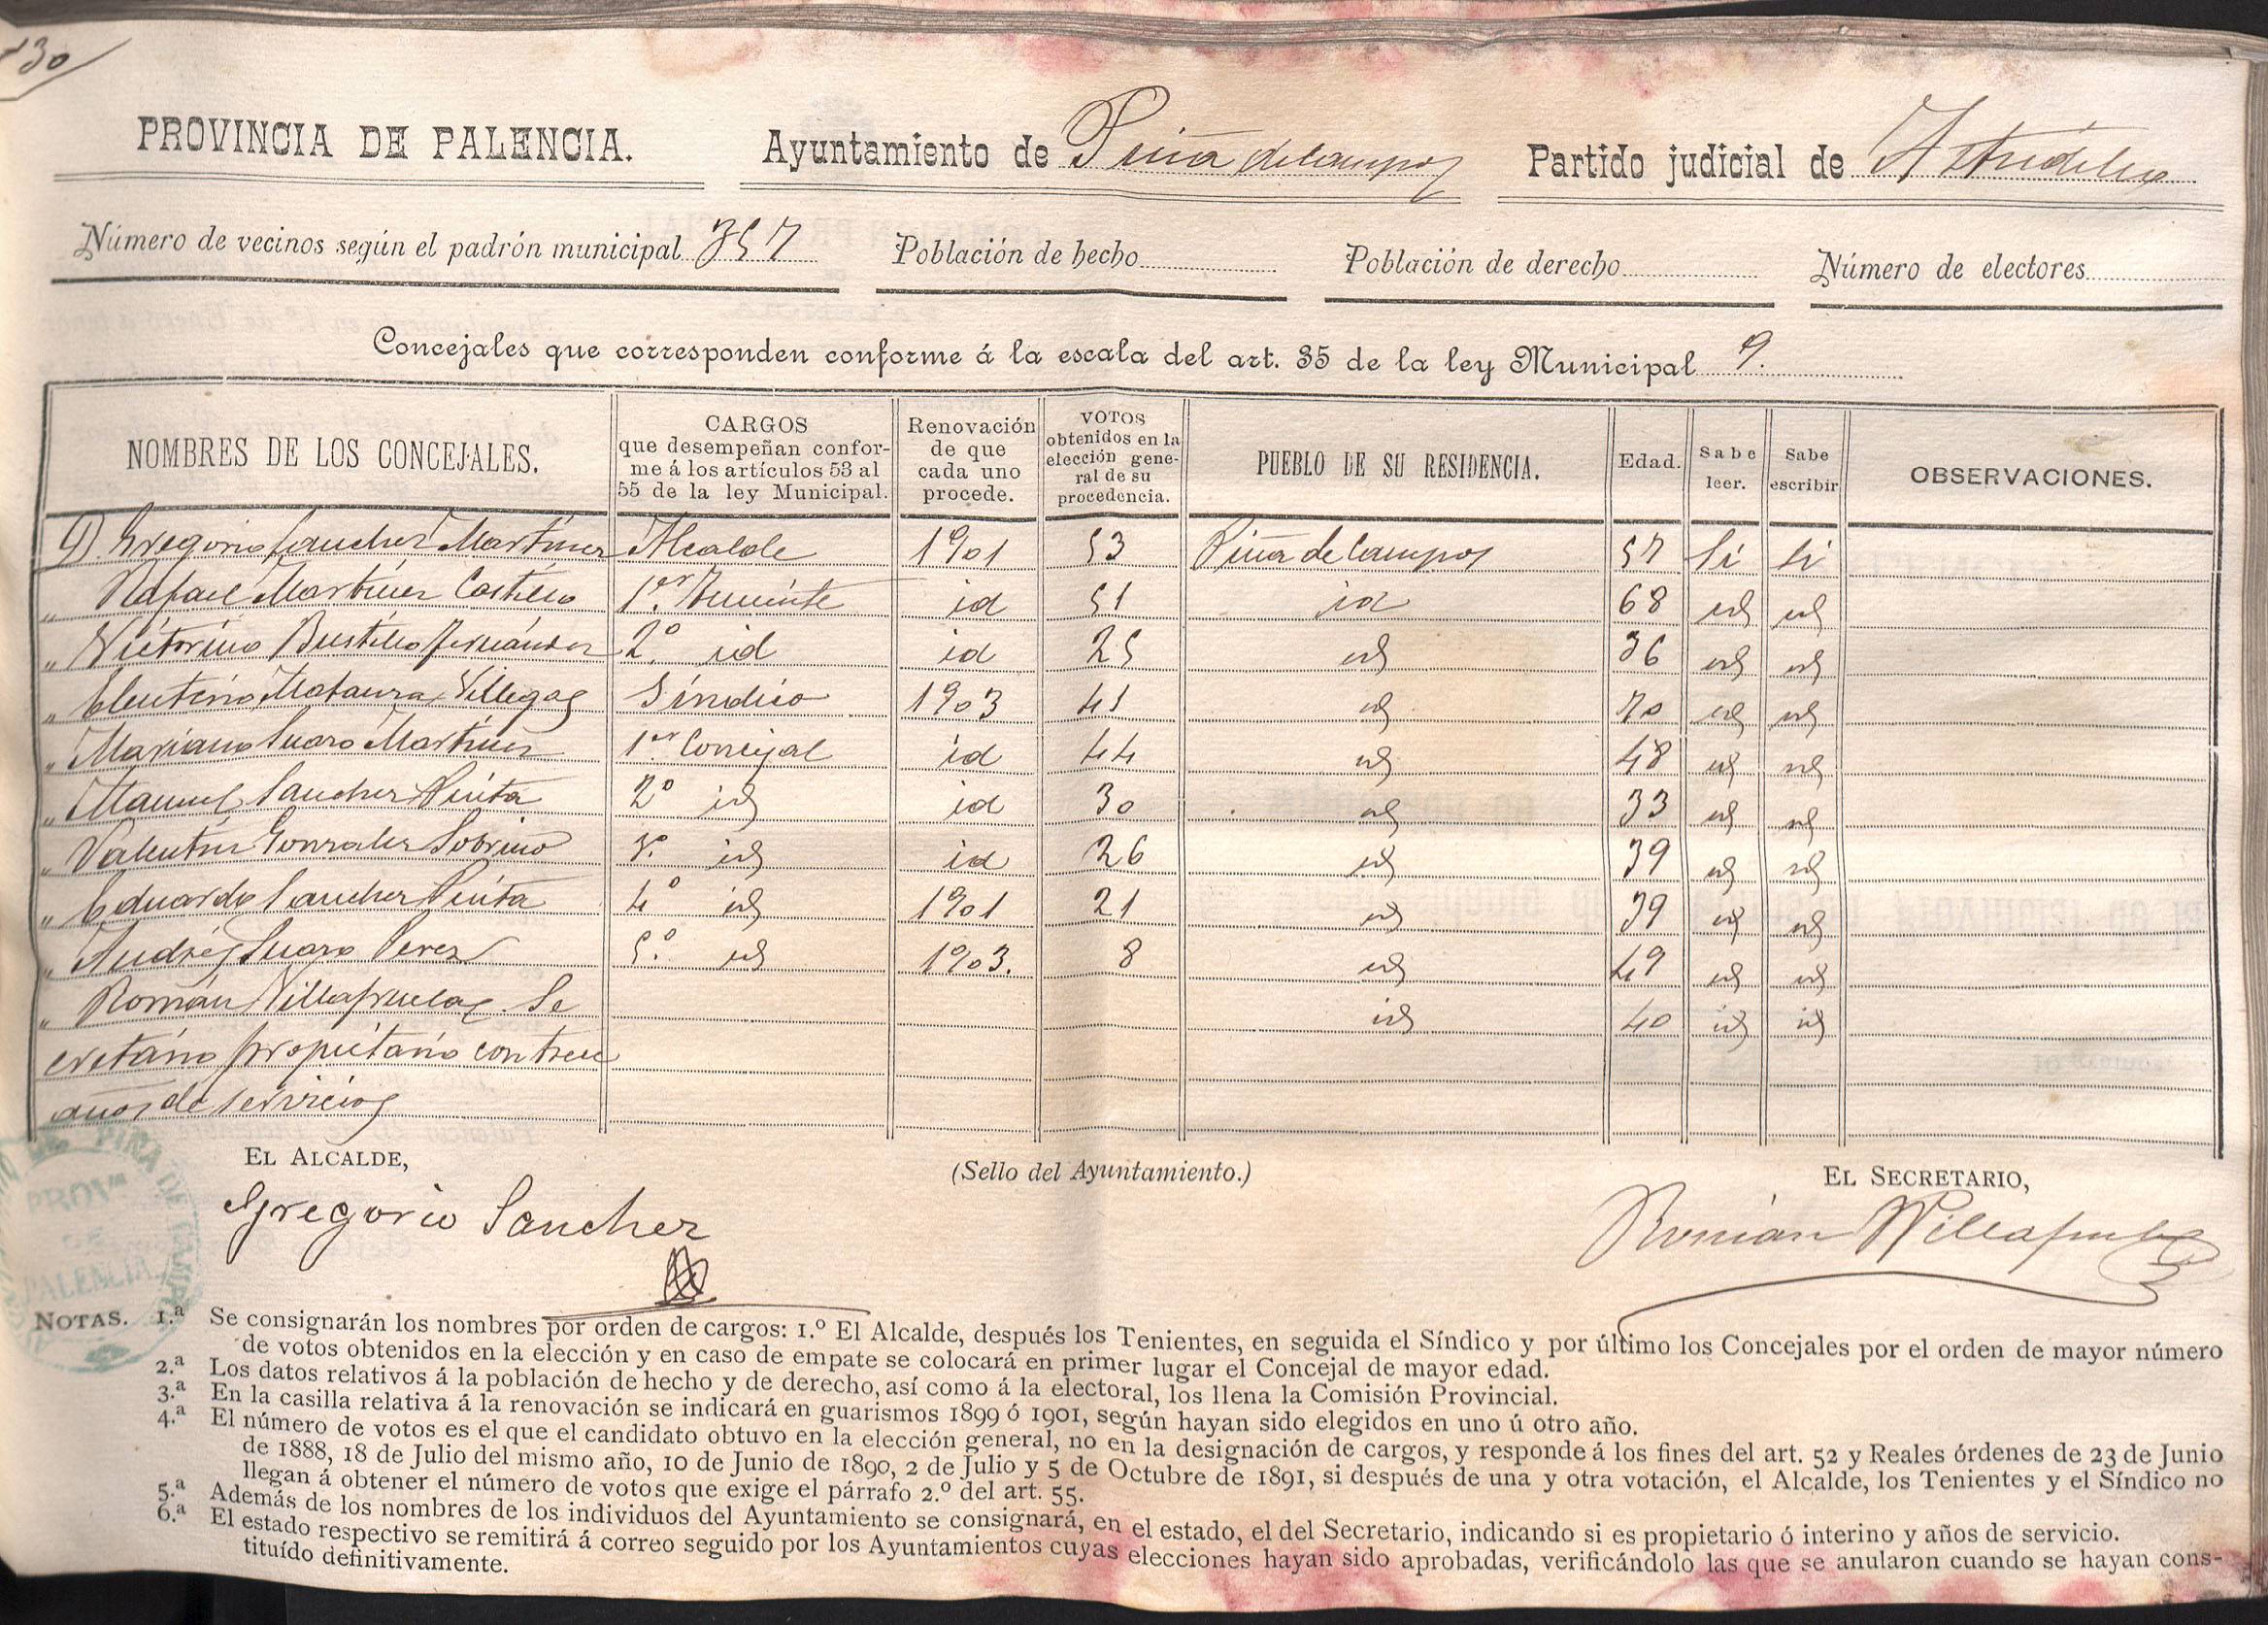 130
PROVINCIA DE PALENCIA. Ayuntamiento de Piña de Campos Partido judicial de Astudillo
Número de vecinos según el padrón municipal 357 Población de hecho Población de derecho Número de electores
Concejales que corresponden conforme á la escala del art. 35 de la ley Municipal 9.
NOMBRES DE LOS CONCEJALES. CARGOS que desempeñan conforme á los artículos 53 al 55 de la ley Municipal. Renovación de que cada uno procede. VOTOS obtenidos en la elección general de su procedencia. PUEBLO DE SU RESIDENCIA. Edad. Sabe leer. Sabe escribir OBSERVACIONES.
D. Gregorio Sanchez Martinez Alcalde 1901 53 Piña de Campos 57 Si Si
" Rafael Martinez Castillo 1er. Teniente id 51 id 68 id id
" Victorino Bustillo Fernández 2º id id 25 id 36 id id
" Eleuterio Villegas Síndico 1903 41 id 70 id id
" Mariano Suaro Martinez 1er Concejal id 44 id 48 id id
" Manuel Sanchez Pinta 2º id id 30 id 33 id id
" Valentin Gonzalez Sobrino 3º id id 26 id 39 id id
" Eduardo Sanchez Pinta 4º id 1901 21 id 39 id id
" Andrés Suaro Perez 5º id 1903. 8 id 49 id id
" Román Villafruela. Se id 40 id id
cretario propietario con trece
años de servicios
EL ALCALDE, (Sello del Ayuntamiento.) EL SECRETARIO,
Gregorio Sanchez Roman Villafruela
PIÑA DE CAMPOS
PROVª
DE
PALENCIA
NOTAS. 1.ª Se consignarán los nombres por orden de cargos: 1.º El Alcalde, después los Tenientes, en seguida el Síndico y por último los Concejales por el orden de mayor número
de votos obtenidos en la elección y en caso de empate se colocará en primer lugar el Concejal de mayor edad.
2.ª Los datos relativos á la población de hecho y de derecho, así como á la electoral, los llena la Comisión Provincial.
3.ª En la casilla relativa á la renovación se indicará en guarismos 1899 ó 1901, según hayan sido elegidos en uno ú otro año.
4.ª El número de votos es el que el candidato obtuvo en la elección general, no en la designación de cargos, y responde á los fines del art. 52 y Reales órdenes de 23 de Junio
de 1888, 18 de Julio del mismo año, 10 de Junio de 1890, 2 de Julio y 5 de Octubre de 1891, si después de una y otra votación, el Alcalde, los Tenientes y el Síndico no
llegan á obtener el número de votos que exige el párrafo 2.º del art. 55.
5.ª Además de los nombres de los individuos del Ayuntamiento se consignará, en el estado, el del Secretario, indicando si es propietario ó interino y años de servicio.
6.ª El estado respectivo se remitirá á correo seguido por los Ayuntamientos cuyas elecciones hayan sido aprobadas, verificándolo las que se anularon cuando se hayan cons-
tituído definitivamente.